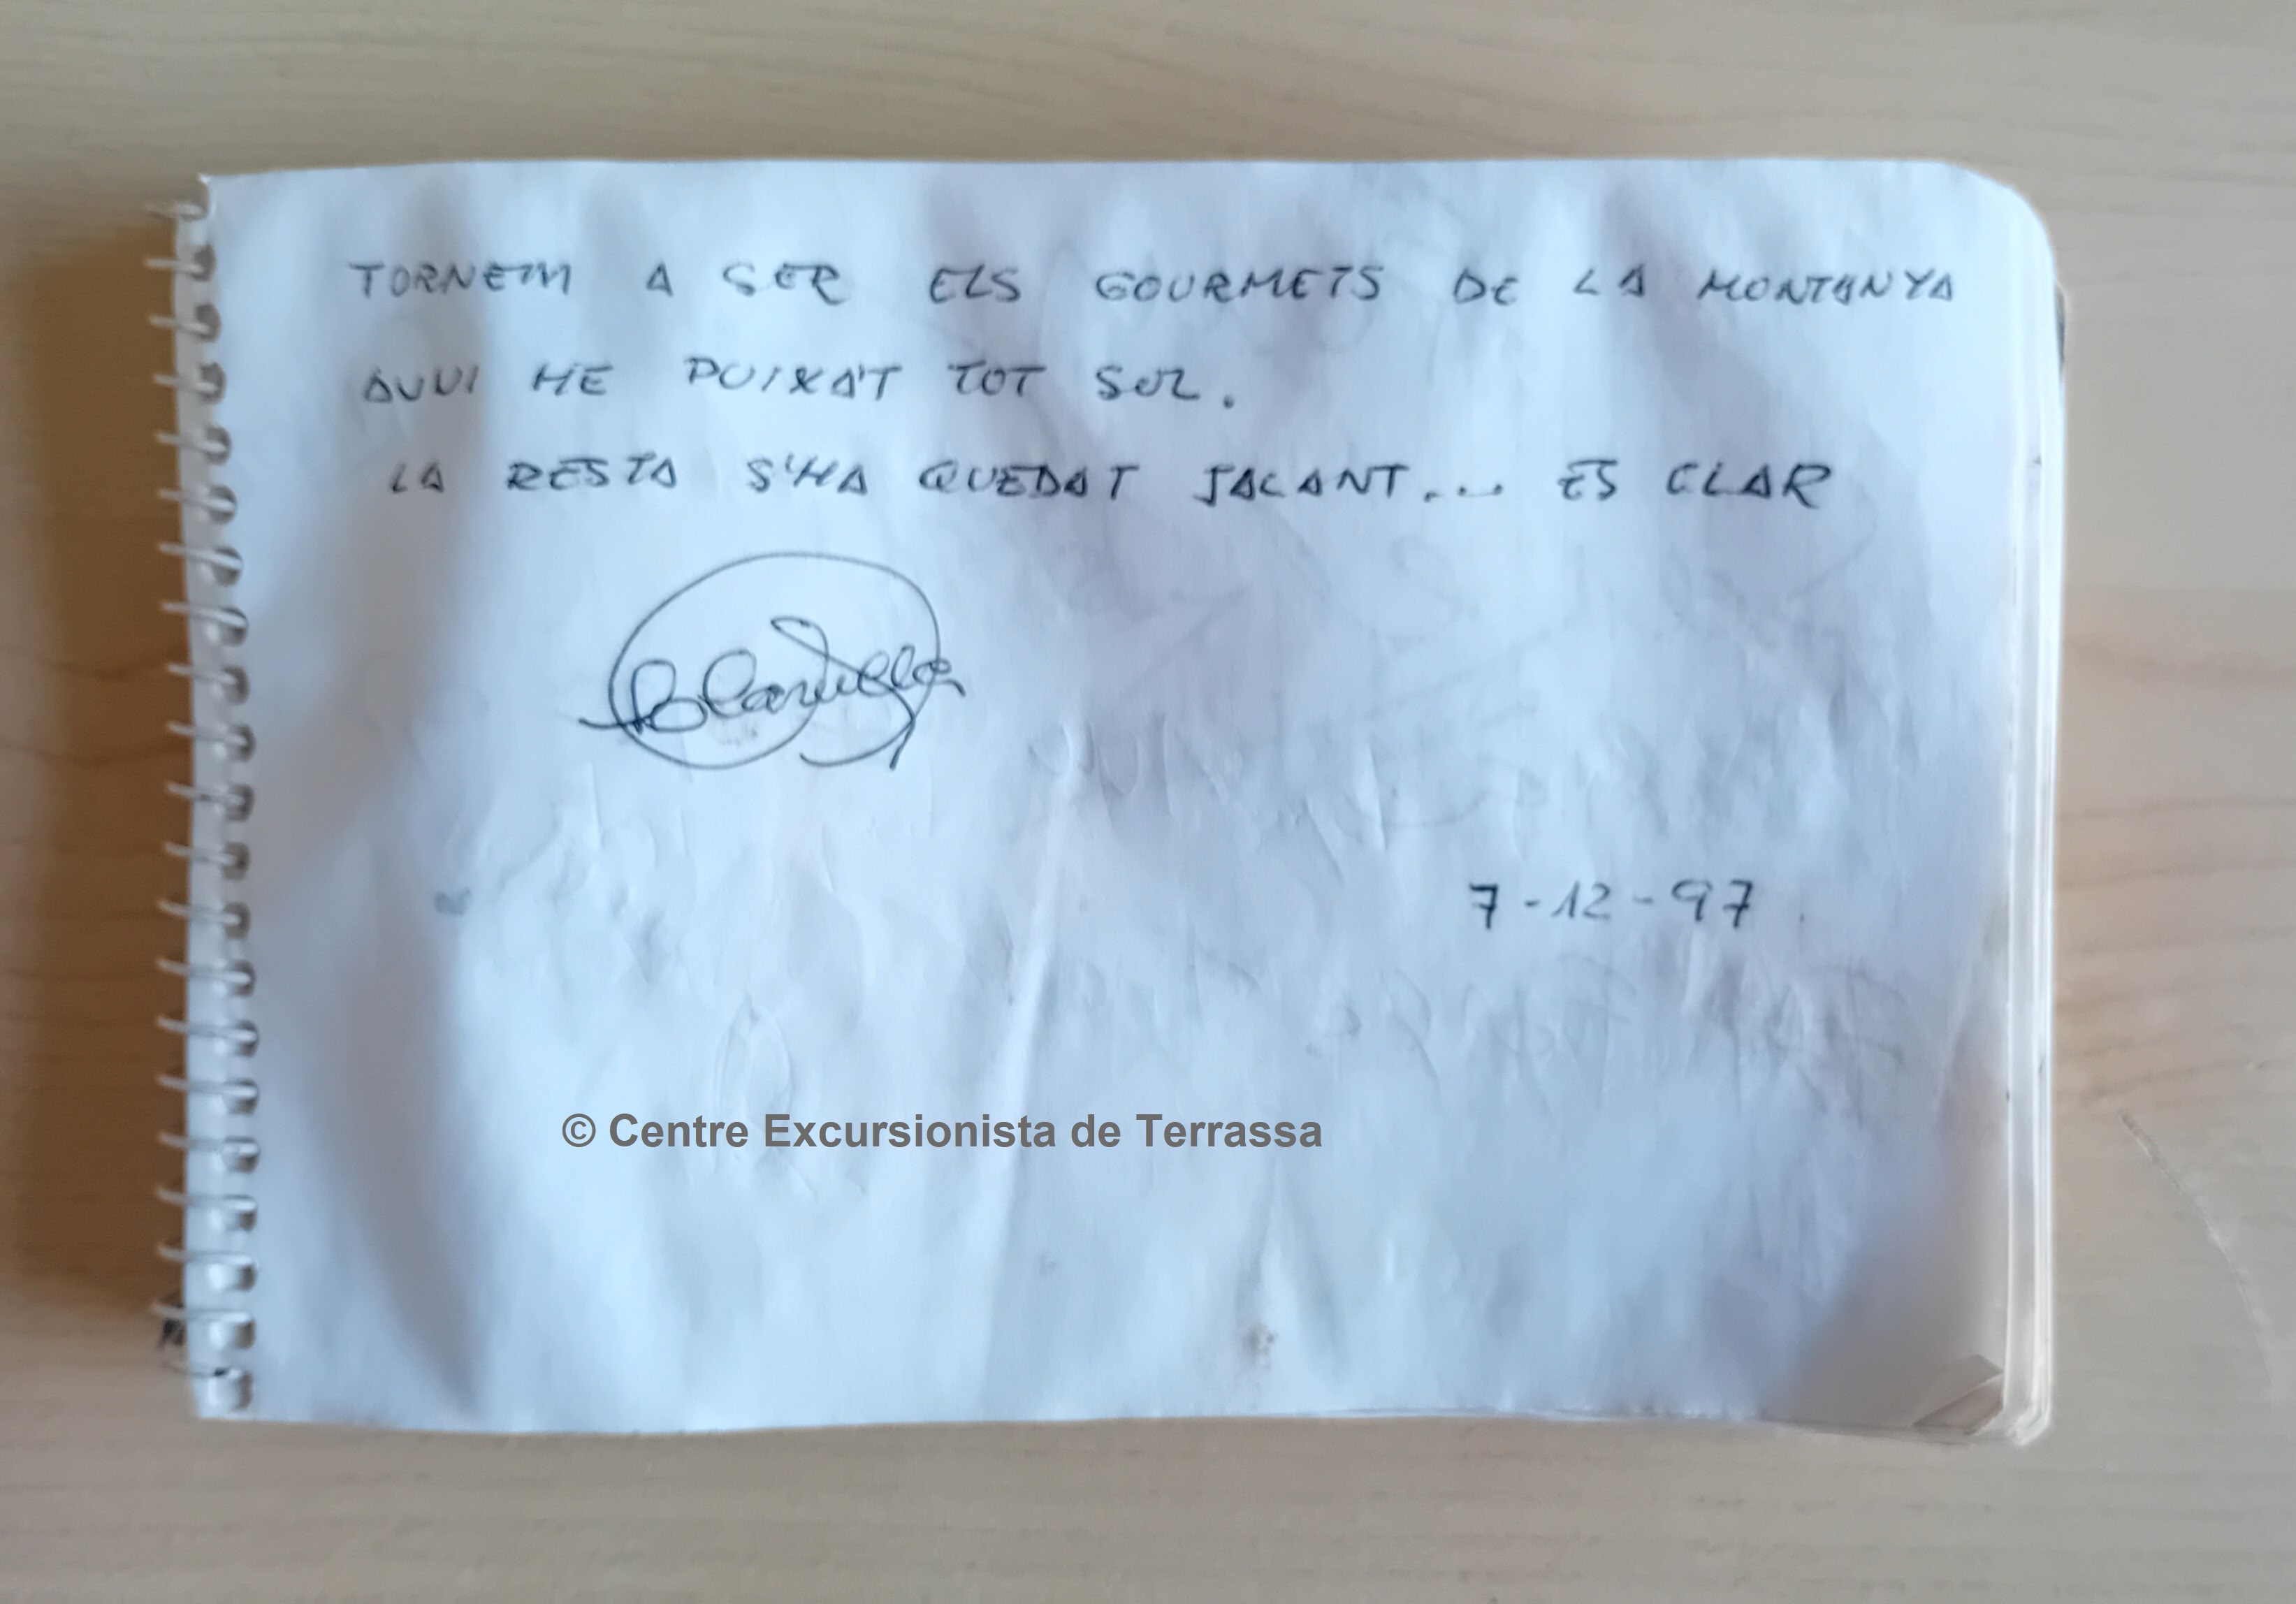 TORNEM A SER ELS GOURMETS DE LA MONTANYA
AVUI HE PUIXAT TOT SOL.
LA RESTA S'HA QUEDAT JALANT... ES CLAR
7-12-97
© Centre Excursionista de Terrassa